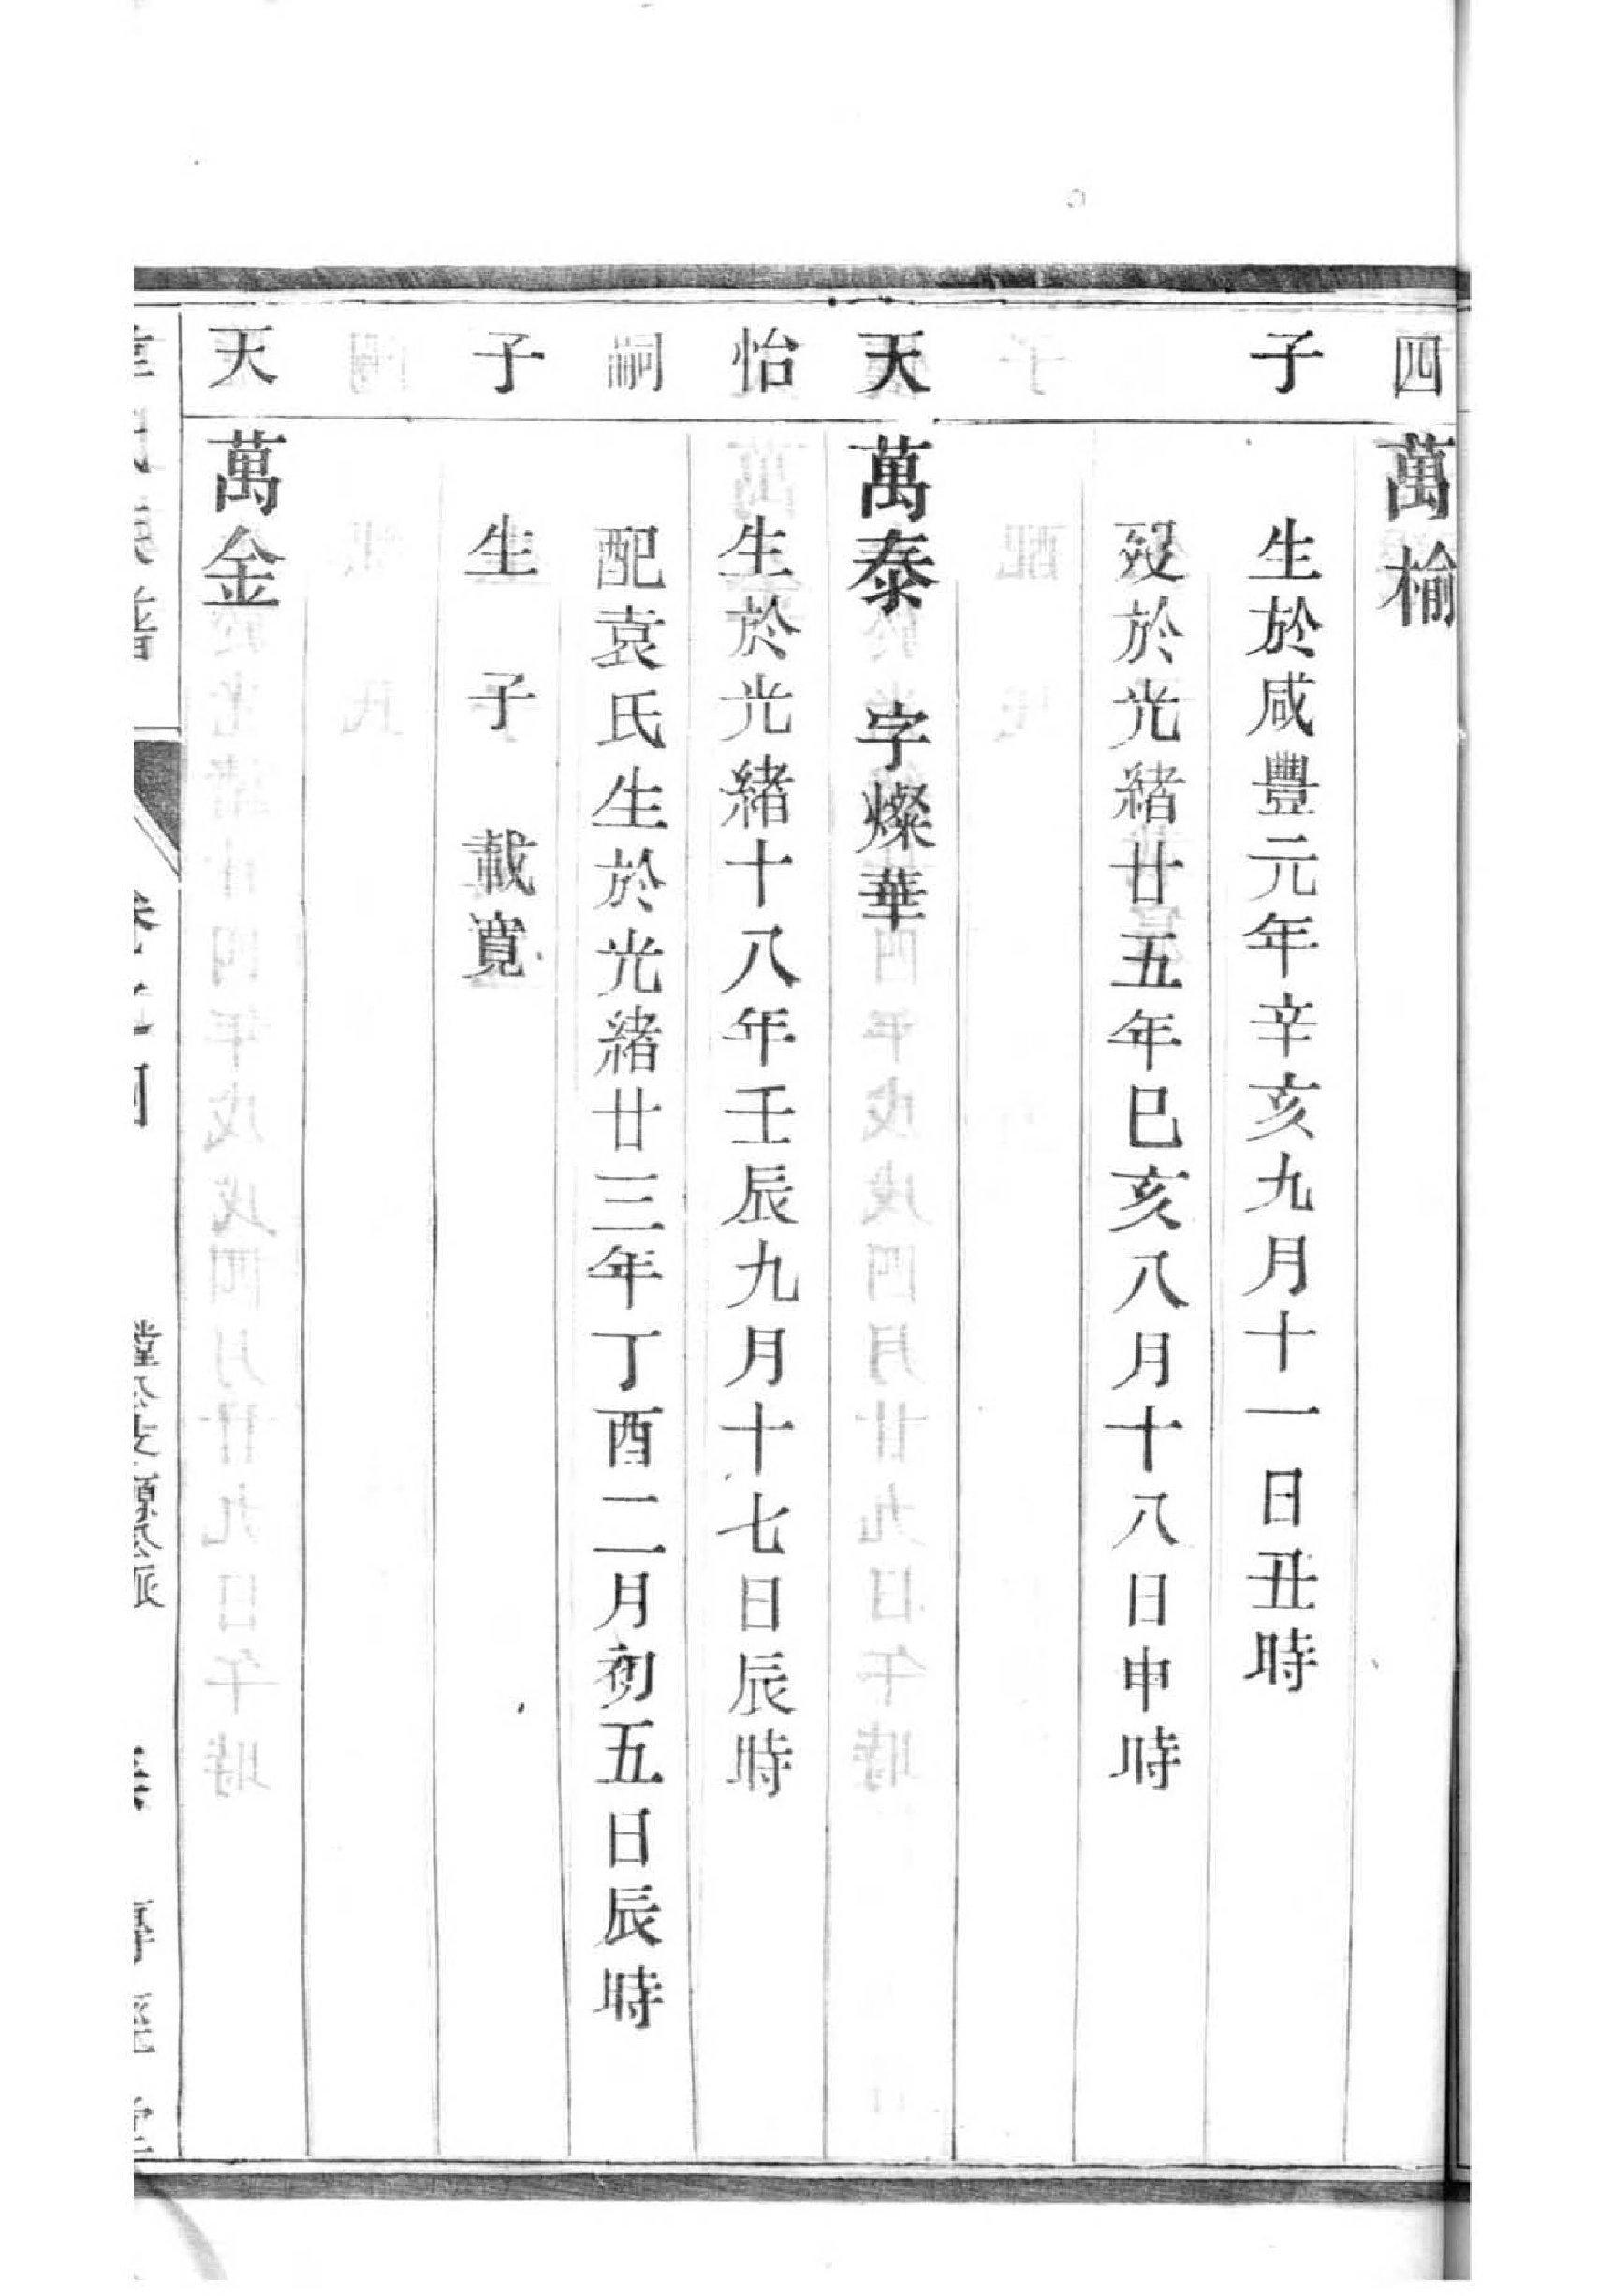 四 萬榆
子 生於咸豐元年辛亥九月十一日丑時
歿於光緒廿五年巳亥八月十八日申時
天 萬泰 字燦華
怡 生於光緒十八年壬辰九月十七日辰時
嗣 配袁氏生於光緒廿三年丁酉二月初五日辰時
子 生子 載寬
天 萬金